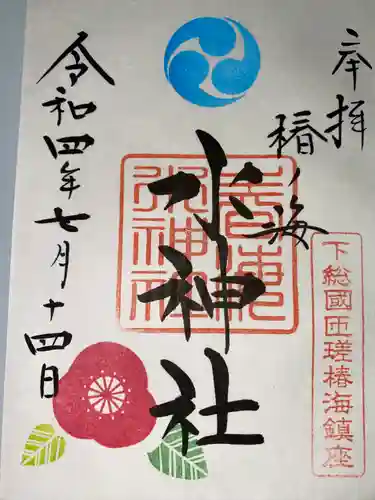 奉拝
下総國匝瑳椿海鎮座
椿ノ海
水神社
椿海水神社
令和四年七月十四日